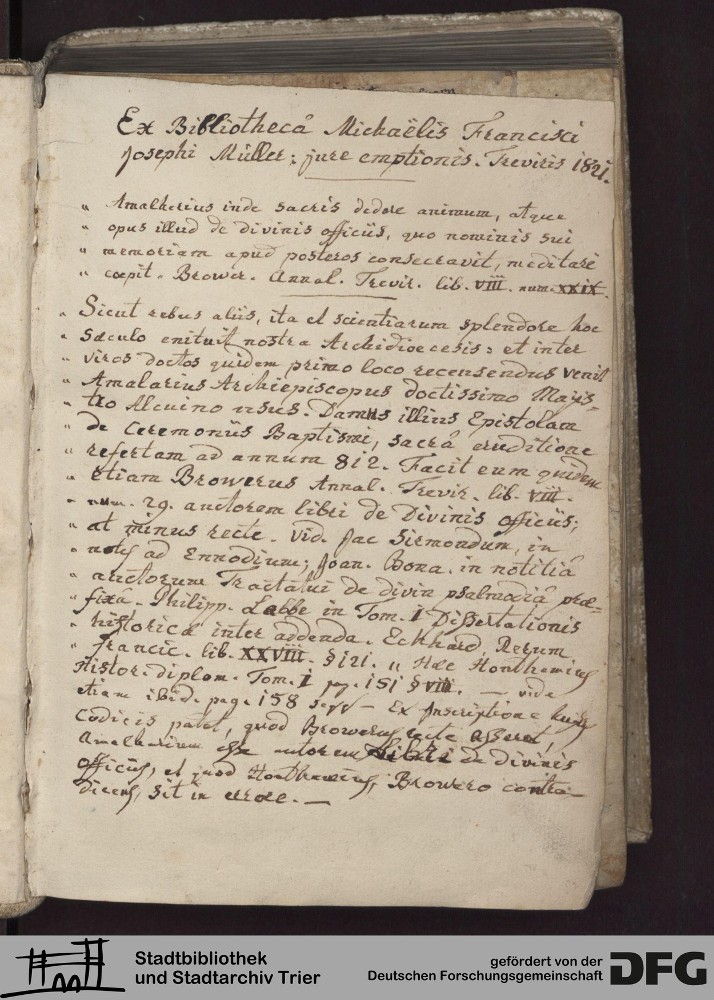 Ex Bibliothecâ Michaëlis Francisci
Josephi Müller; jure emptionis. Treviris 1821.
" Amalherius inde sacris dedere animum, atque
" opus illud de divinis officiis, quo nominis sui
" memoriam apud posteros consecravit, meditari
" cœpit. Brower. Annal. Trevir. lib. VIII. num. XXIX.
" Sicut rebus aliis, ita et scientiarum splendore hoc
" Sæculo enituit nostra Archidioecesis: et inter
" viros doctos quidem primo loco recensendus venit
" Amalarius Archiepiscopus doctissimo Magis-
" tro Alcuino usus. Damus illius Epistolam
" de Ceremoniis Baptismi, sacrâ eruditione
" refertam ad annum 812. Facit eum quidem
" etiam Browerus Annal. Trevir. lib. VIII.
" num. 29. auctorem libri de Divinis officiis;
" at minus recte. Vid. Jac Sirmondum, in
" notis ad Ennodium; Joan. Bona. in notitiâ
" auctorum Tractatui de divin psalmodiâ præ-
" fixâ. Philipp. Labbe in Tom. I Dissertationis
" historicæ inter addenda. Eckhard, Rerum
" Francic. lib. XXVIII. § 121. " Hæc Honthemius
Histor. diplom. Tom. I pag. 151 § VIII. — vide
etiam ibid. pag. 158 seqq — Ex Inscriptione hujus
Codicis patet, quod Browerus recte asserat,
Amalherium esse autorem libri de divinis
officiis, et quod Honthemius, Browero contra-
dicens, sit in errore. —
Stadtbibliothek
und Stadtarchiv Trier
gefördert von der
Deutschen Forschungsgemeinschaft
DFG